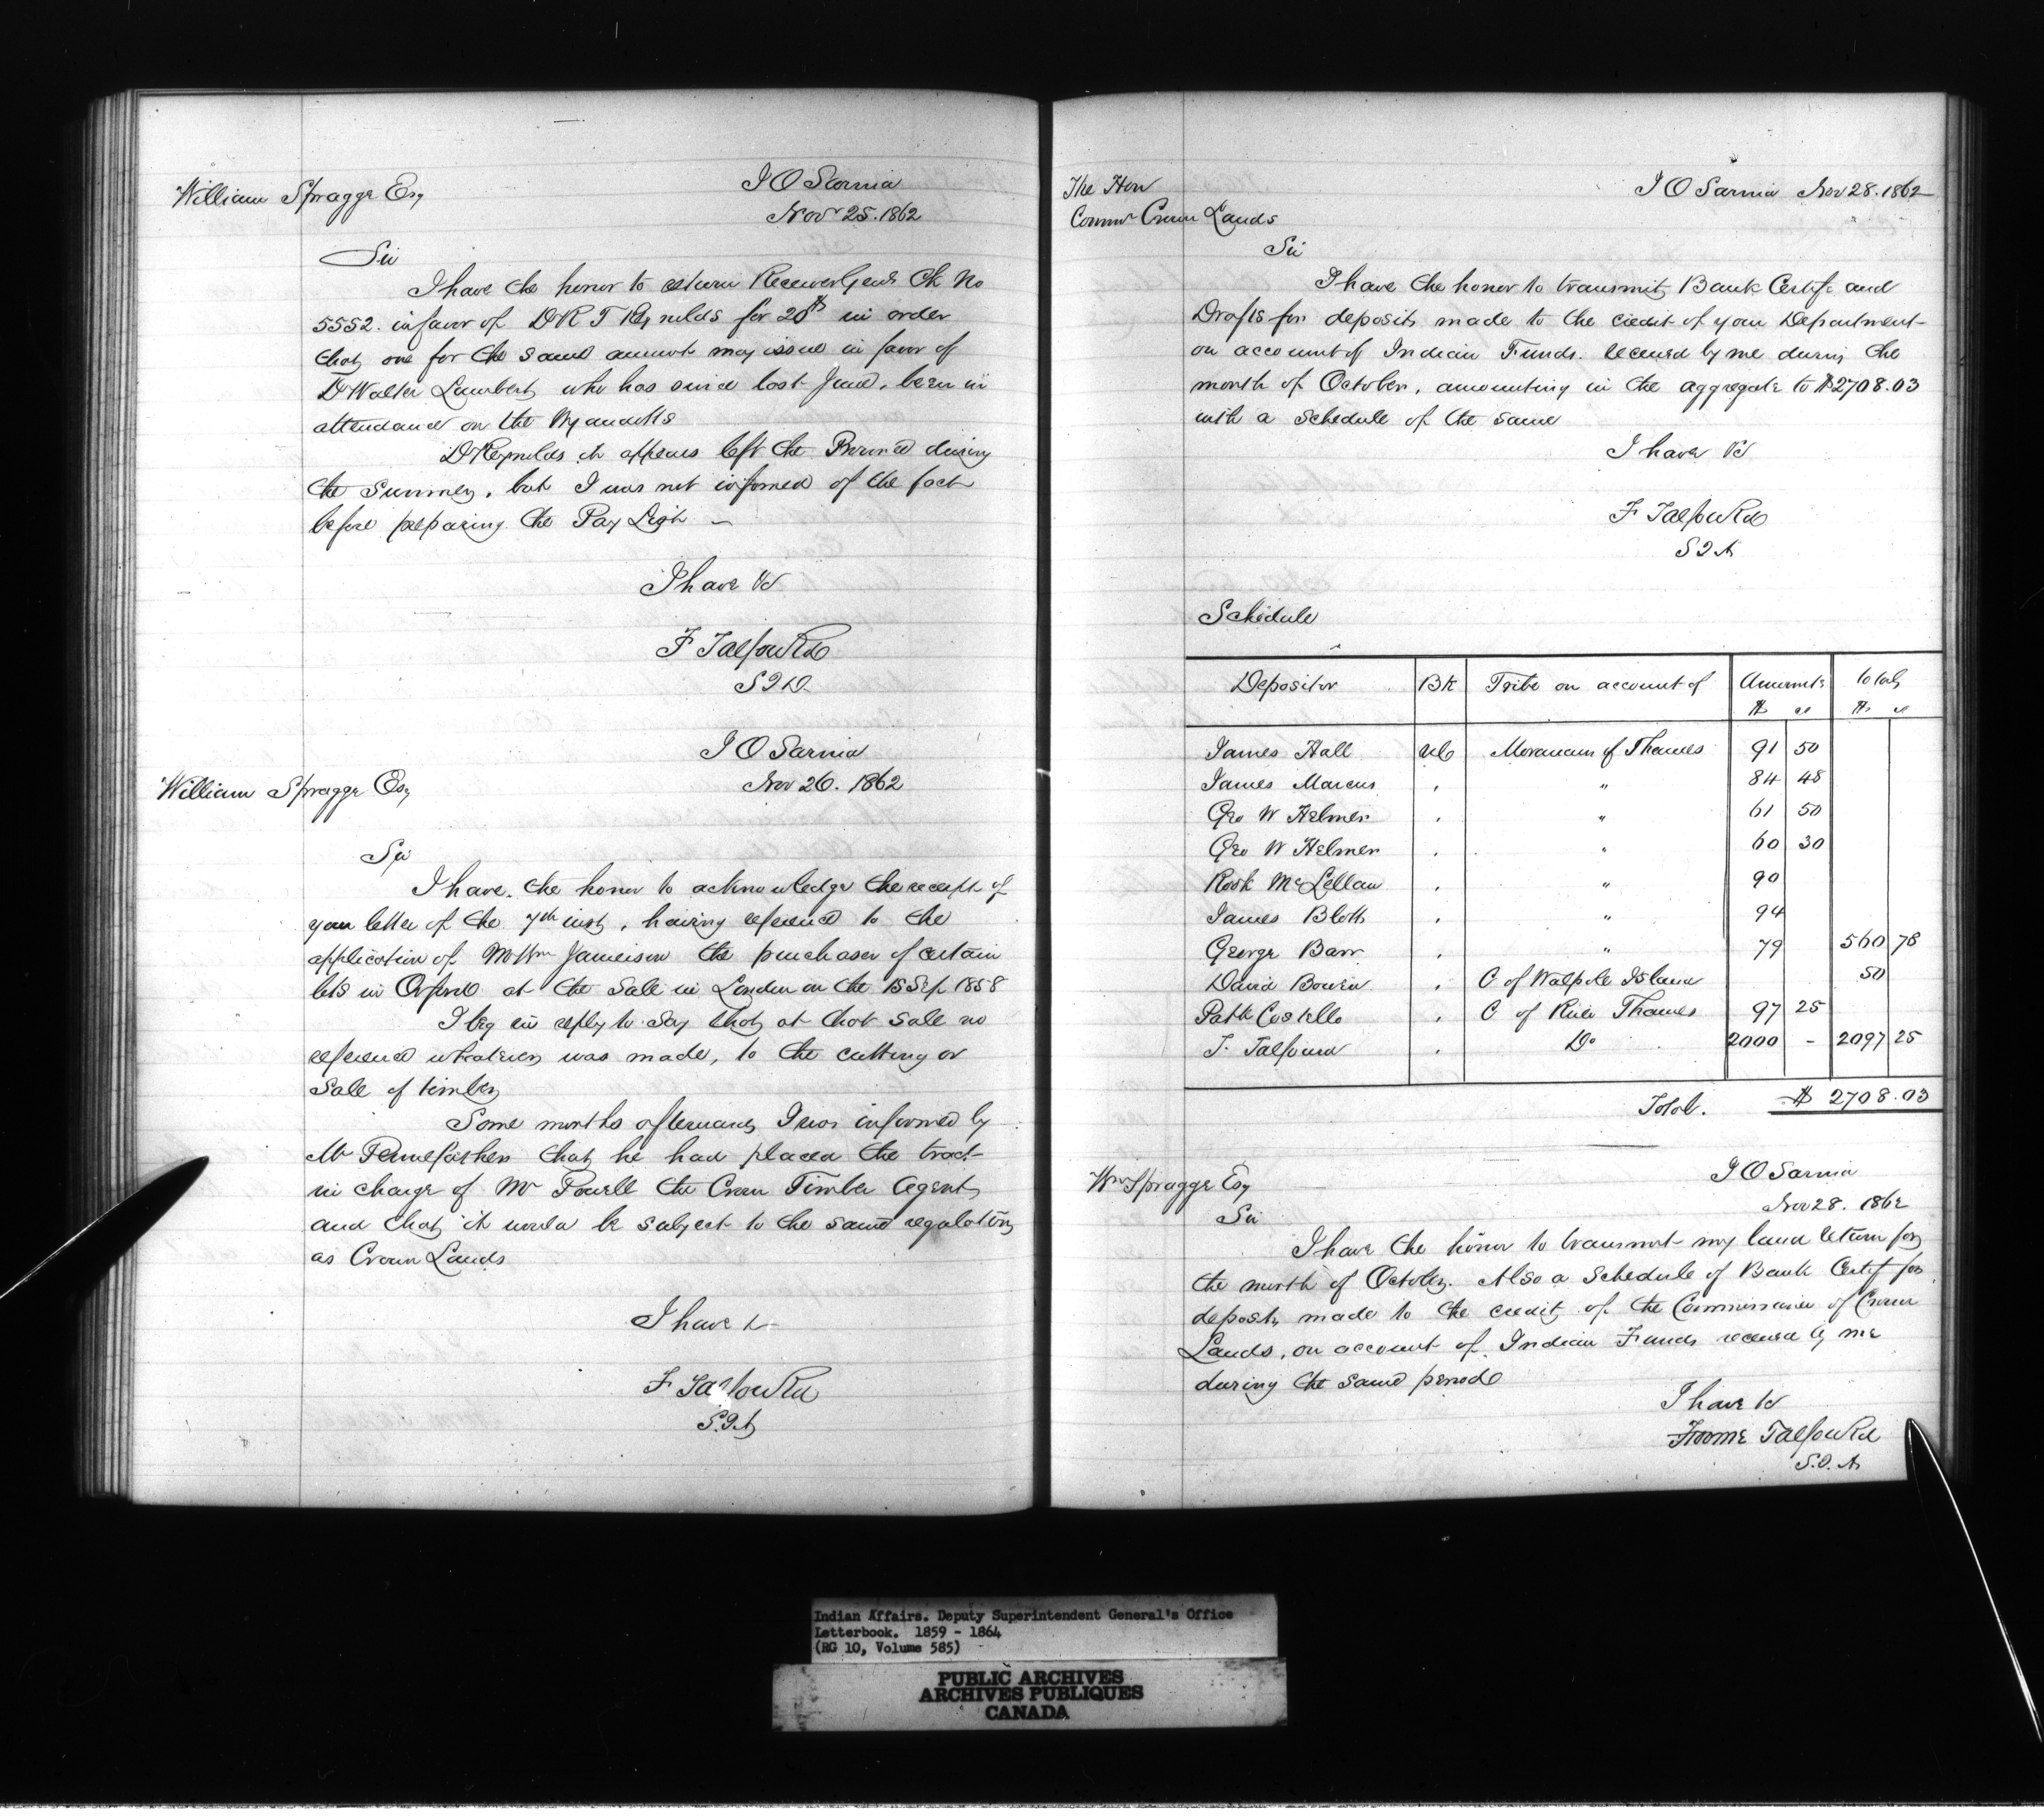 William Spragge Esq
I O Sarnia
Nov 25. 1862
Sir
I have the honor to return Receiver Genls Ck No
5552. in favor of Dr R T Reynolds for 20$ in order
that one for the same amount may issue in favor of
Dr Walter Lambert who has since last June, been in
attendance on the Wyandotts
Dr Reynolds it appears left the Province during
the summer, but I was not informed of the fact
before preparing the Pay List —
I have &c
F Talfourd
S I A
I O Sarnia
Nov 26. 1862
William Spragge Esq
Sir
I have the honor to acknowledge the receipt of
your letter of the 7th inst, having reference to the
application of Mr Wm Jameison the purchaser of certain
lots in Orford at the Sale in London on the 15 Sep 1858
I beg in reply to say that at that sale no
reference whatever was made, to the cutting or
Sale of timber
Some months afterwards I was informed by
Mr Pennefather that he had placed the tract
in charge of Mr Powell the Crown Timber Agent,
and that it would be subject to the same regulations
as Crown Lands
I have &
F Talfourd
S.I.A
The Hon
Commr Crown Lands
I O Sarnia Nov 28. 1862
Sir
I have the honor to transmit Bank Certifs and
Drafts for deposits made to the credit of your Department
on account of Indian Funds. received by me during the
month of October, amounting in the aggregate to $2708.03
with a schedule of the same
I have &c
F Talfourd
S I A
Schedule
Depositor Bk Tribe on account of Amounts totals
$ cs $ cs
James Hall UC Moravians of Thames 91 50
James Marcus . " 84 48
Geo W Helmer . " 61 50
Geo W Helmer . " 60 30
Rosk McLellan . " 90
James Blott . " 94
George Barr . " 79 560 78
David Bowen . C of Walpole Island 50
Patk Costello . C of River Thames 97 25
F. Talfourd . Do 2000 - 2097 25
Total. $ 2708.03
Wm Spragge Esq
I O Sarnia
Nov 28. 1862
Sir
I have the honor to transmit my land return for
the month of October. Also a Schedule of Bank Certif for
deposits made to the credit of the Commissioner of Crown
Lands, on account of Indian Funds received by me
during the same period
I have &c
Froome Talfourd
S.I.A
Indian Affairs. Deputy Superintendent General's Office
Letterbook. 1859 - 1864
(RG 10, Volume 585)
PUBLIC ARCHIVES
ARCHIVES PUBLIQUES
CANADA